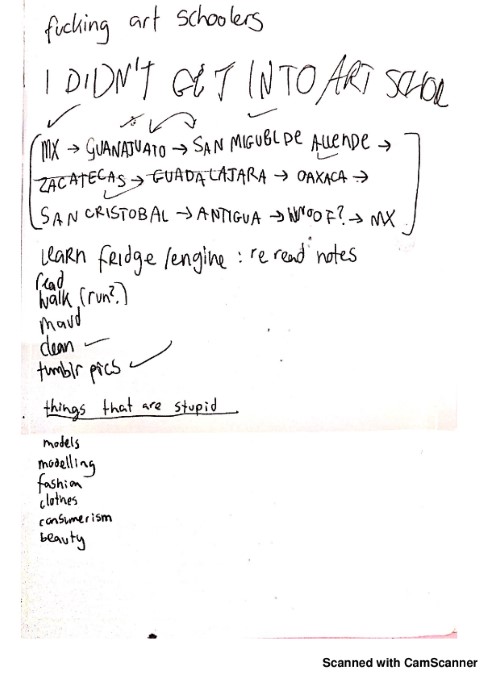 fucking art schoolers
I DIDN'T GET INTO ART SCHOOL
MX → GUANAJUATO → SAN MIGUEL DE ALLENDE →
ZACATECAS → GUADALAJARA → OAXACA →
SAN CRISTOBAL → ANTIGUA → WWOOF? → MX
learn fridge/engine : re read notes
read
walk (run?)
maud
clean
tumblr pics
things that are stupid
models
modelling
fashion
clothes
consumerism
beauty
Scanned with CamScanner